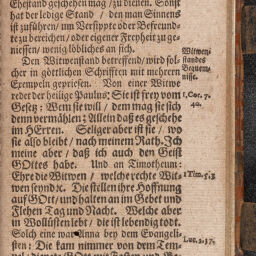 Ehestand geschehen mag / zu dienen. Sonst
hat der ledige Stand / den man Sinnens
ist zuführen / um Versippte oder Befeund-
te zu bereichen / oder eigener Freyheit zu ge-
niessen / wenig löbliches an sich.
Den Witwenstand betreffend / wird sol-
cher in göttlichen Schrifften mit mehrern
Exempeln gepriesen. Von einer Witwe
redet der heilige Paulus: Sie ist frey vom
Gesetz: Wem sie will / dem mag sie sich
denn vermählen: Allein daß es geschehe
im HErren. Seliger aber ist sie / wo
sie also bleibt / nach meinem Rath. Ich
meine aber / daß ich auch den Geist
GOttes habe. Und an Timotheum:
Ehre die Witwen / welche rechte Wit-
wen seynd x. Die stellen ihre Hoffnung
auf GOtt / und halten am Gebet und
Flehen Tag und Nacht. Welche aber
in Wollüsten lebt / die ist lebendig todt.
Solch eine war Anna bey dem Evangeli-
sten: Die kam nimmer von dem Tem-
Witwen-
standes
Bequem-
nisse.
1. Cor. 7.
40.
1 Tim. 5.3
Luc. 2.37.